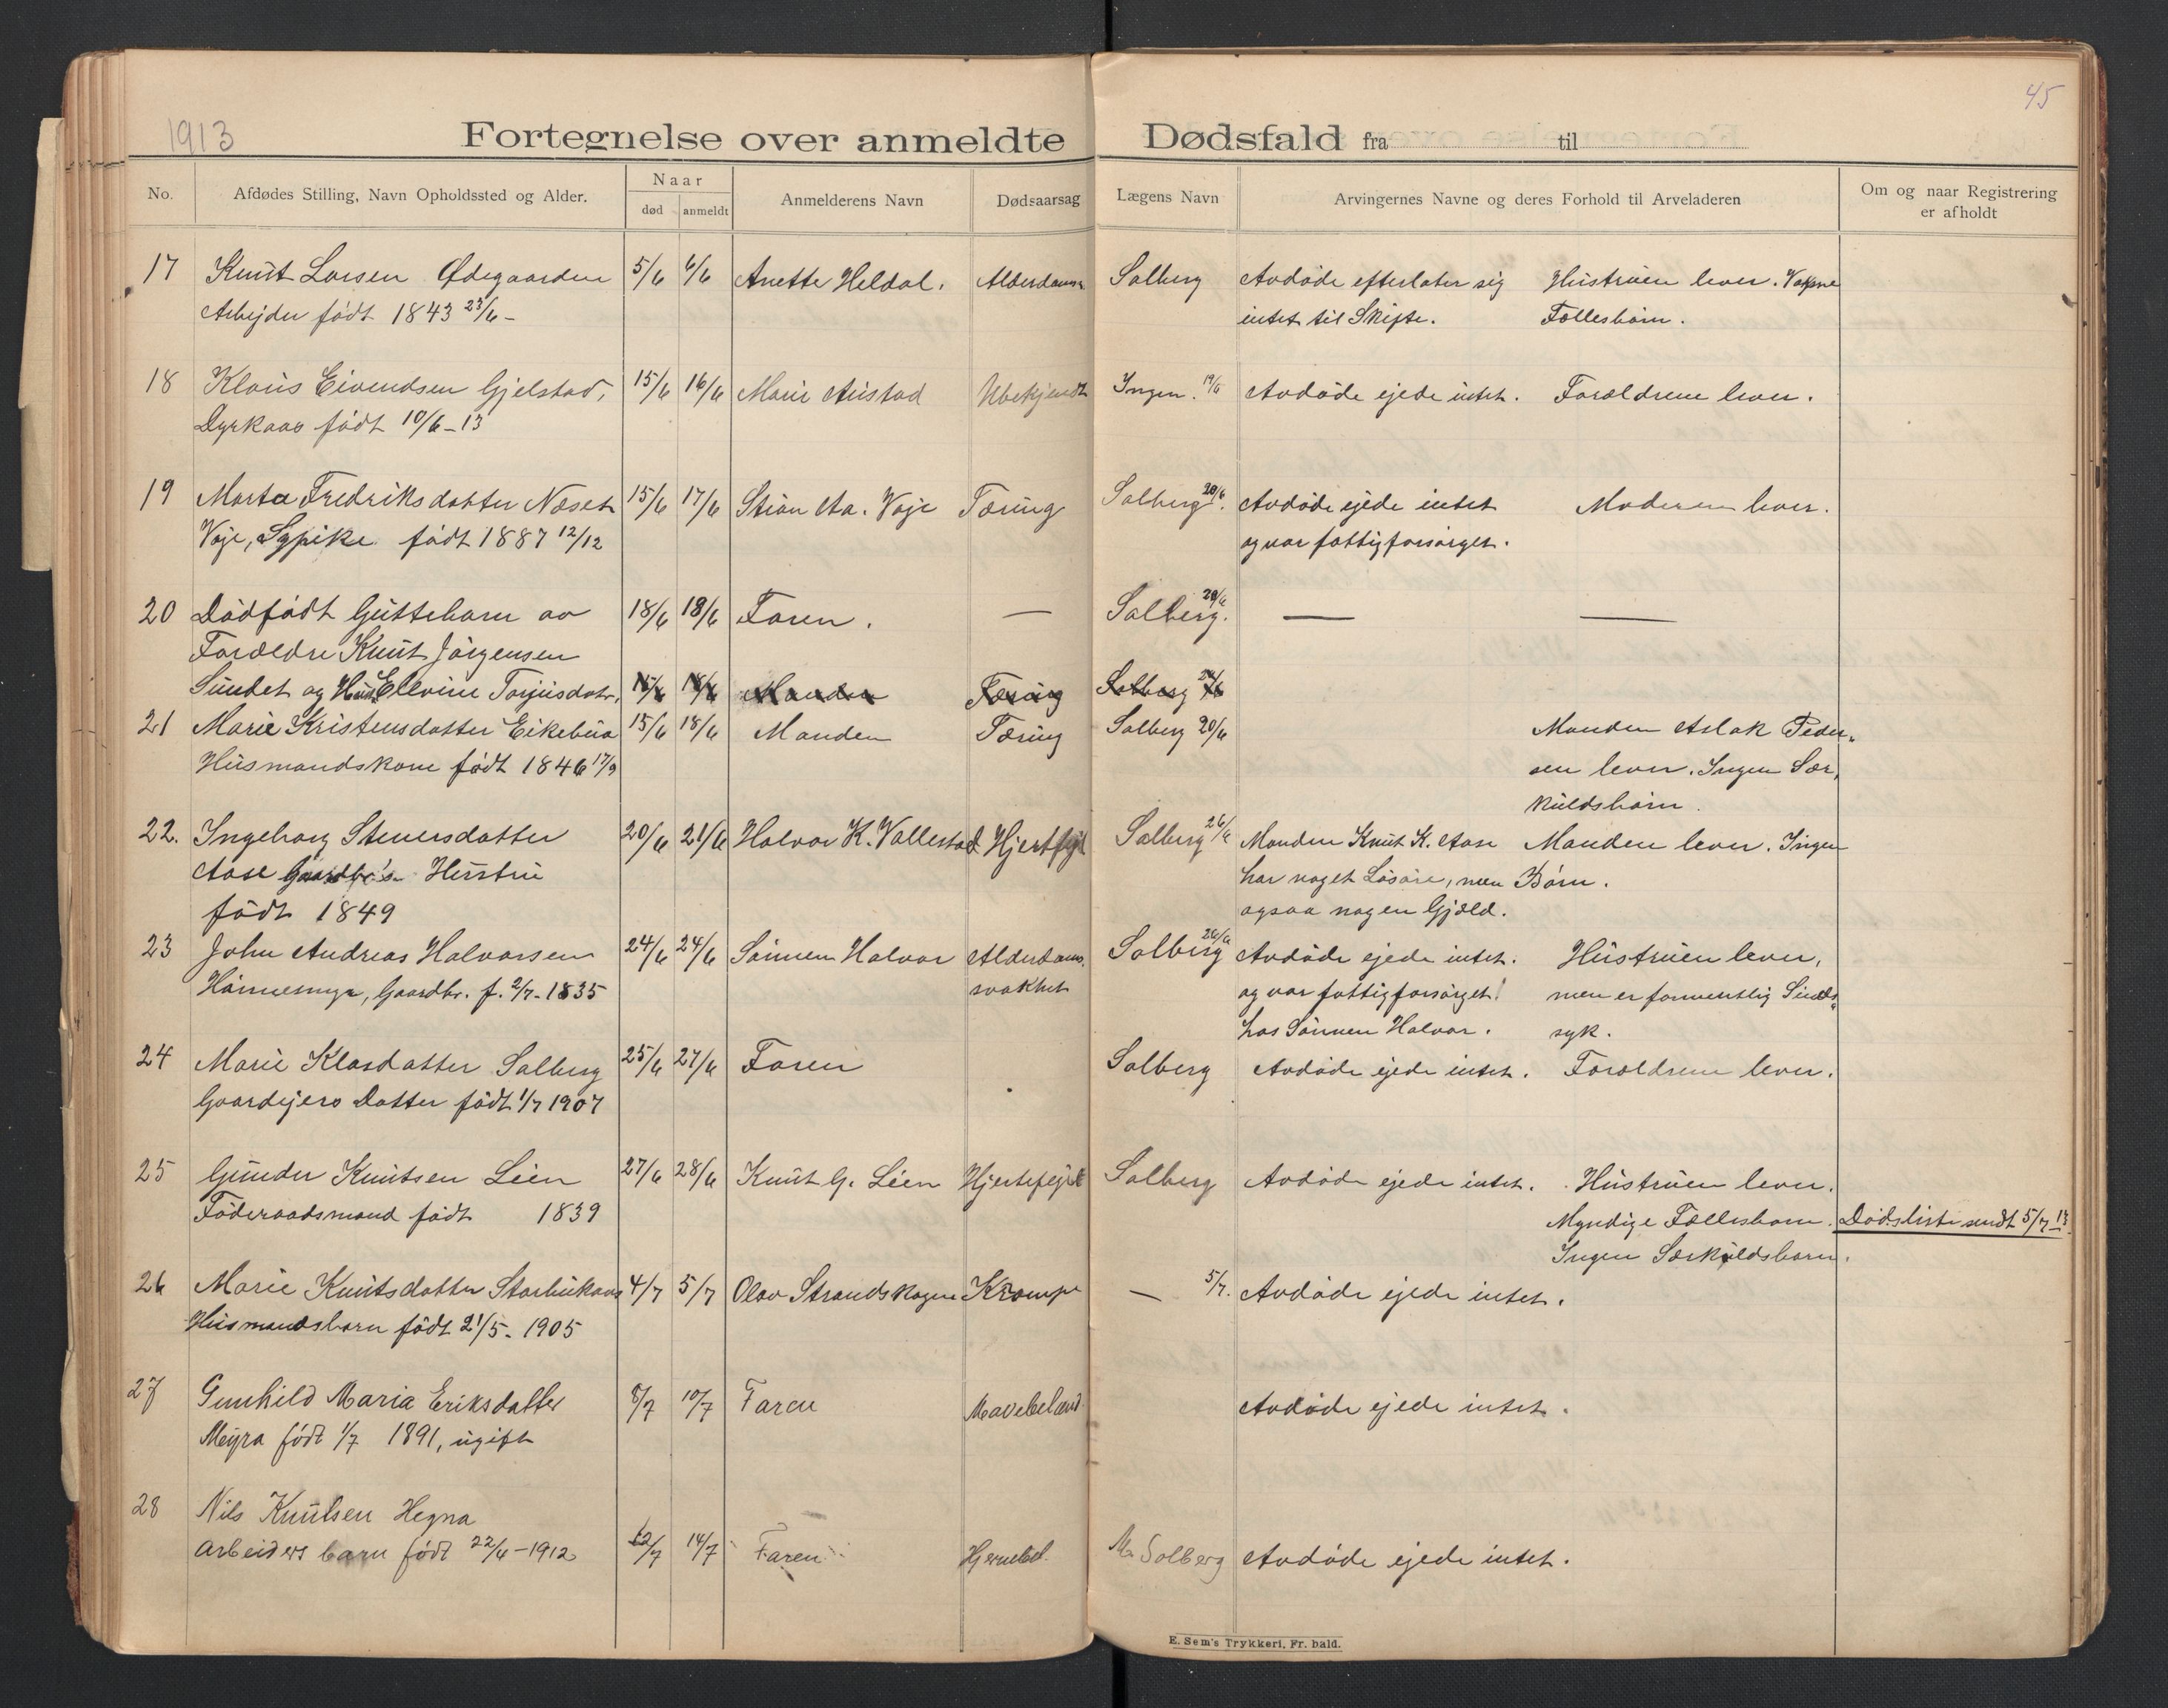 45
1913
Fortegnelse over anmeldte Dødsfald fra til
No. Afdødes Stilling, Navn Opholdssted og Alder. Naar død anmeldt Anmelderens Navn Dødsaarsag Lægens Navn Arvingernes Navne og deres Forhold til Arveladeren Om og naar Registrering er afholdt
17 Knut Larsen Ødegaarden 5/6 6/6 Anette Heldal. Alderdoms Solberg Avdöde efterlater sig Hustruen lever. Voksne
Arbejder født 1843 23/6 - intet til Skifte. Fællesbörn.
18 Klaus Eivendsen Gjelstad, 15/6 16/6 Marie Austad Ubekjendt Ingen. 19/6 Avdöde ejede intet. Forældrene lever.
Dyrkaas födt 10/6-13
19 Marta Fredriksdatter Næset 15/6 17/6 Stian Aa. Vaje Tæring Solberg 20/6. Avdöde ejede intet Moderen lever.
Vaje, Sypike födt 1887 12/12 og var fattigforsörget.
20 Dödfödt Guttebarn av 18/6 18/6 Faren. — Solberg. 20/6 — —
Forældre Knut Jörgensen
Sundet og Hust. Elevine Torjusdatr. 15/6 18/6 Manden Tæring Solberg 20/6
21 Marie Kristensdatter Eikebua 15/6 18/6 Manden Tæring Solberg 20/6 Manden Aslak Peder-
Husmandskone födt 1846 17/9 sen lever. Ingen Sær-
kuldsbörn.
22. Ingeborg Steversdatter 20/6 21/6 Halvor K. Vallestad Hjertfejl Solberg 26/6 Manden Knut K. Aase Manden lever. Ingen
Aase Gaardbr's Hustru har noget Lösöre, men Börn.
födt 1849 ogsaa nogen Gjæld.
23 John Andreas Halvorsen 24/6 24/6 Sönnen Halvor Alderdoms- Solberg 26/6 Avdöde ejede intet. Hustruen lever,
Hönnemyr, Gaardbr. f. 2/7-1835 svakhet og var fattigforsörget men er formentlig Sinds-
hos Sönnen Halvor. syk.
24 Marie Klasdatter Solberg 25/6 27/6 Faren Solberg Avdöde ejede intet. Forældrene lever.
Gaardejers Datter födt 1/7 1907
25 Gunder Knutsen Lien 27/6 28/6 Knut G. Lien Hjertefejl Solberg Avdöde ejede intet. Hustruen lever.
Föderaadsmand födt 1839 Myndige Fællesbarn. Dödsliste sendt 5/7-13
Ingen Særkuldsbarn.
26 Marie Knutsdatter 4/7 5/7 Olav Strandskogen Krampe — 5/7. Avdöde ejede intet.
Husmandsbarn födt 21/5-1905
27 Gunhild Maria Eriksdatter 8/7 10/7 Faren Mavebetænd Avdöde ejede intet.
Meyra född 1/7 1891, ugift
28 Nils Knutsen Hegna
Arbeiders barn född 22/4-1912 12/7 14/7 Faren Hjernebet. M. Solberg Avdöde ejede intet.
E. Sem's Trykkeri, Fr. hald.